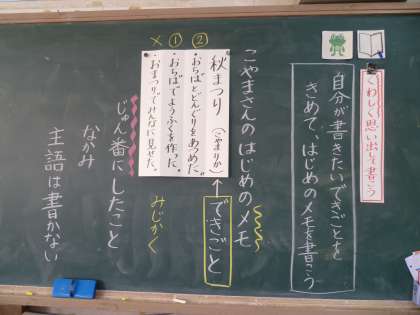 くわしく思い出して書こう
自分が書きたいできごとを
きめて、はじめのメモを書こう
こやまさんのはじめのメモ
できごと
秋まつり (こやまりか)
②・おちばとどんぐりをあつめた。
①・おちばでようふくを作った。
×・おまつりでみんなに見せた。
みじかく
じゅん番にしたこと
なかみ
主語は書かない